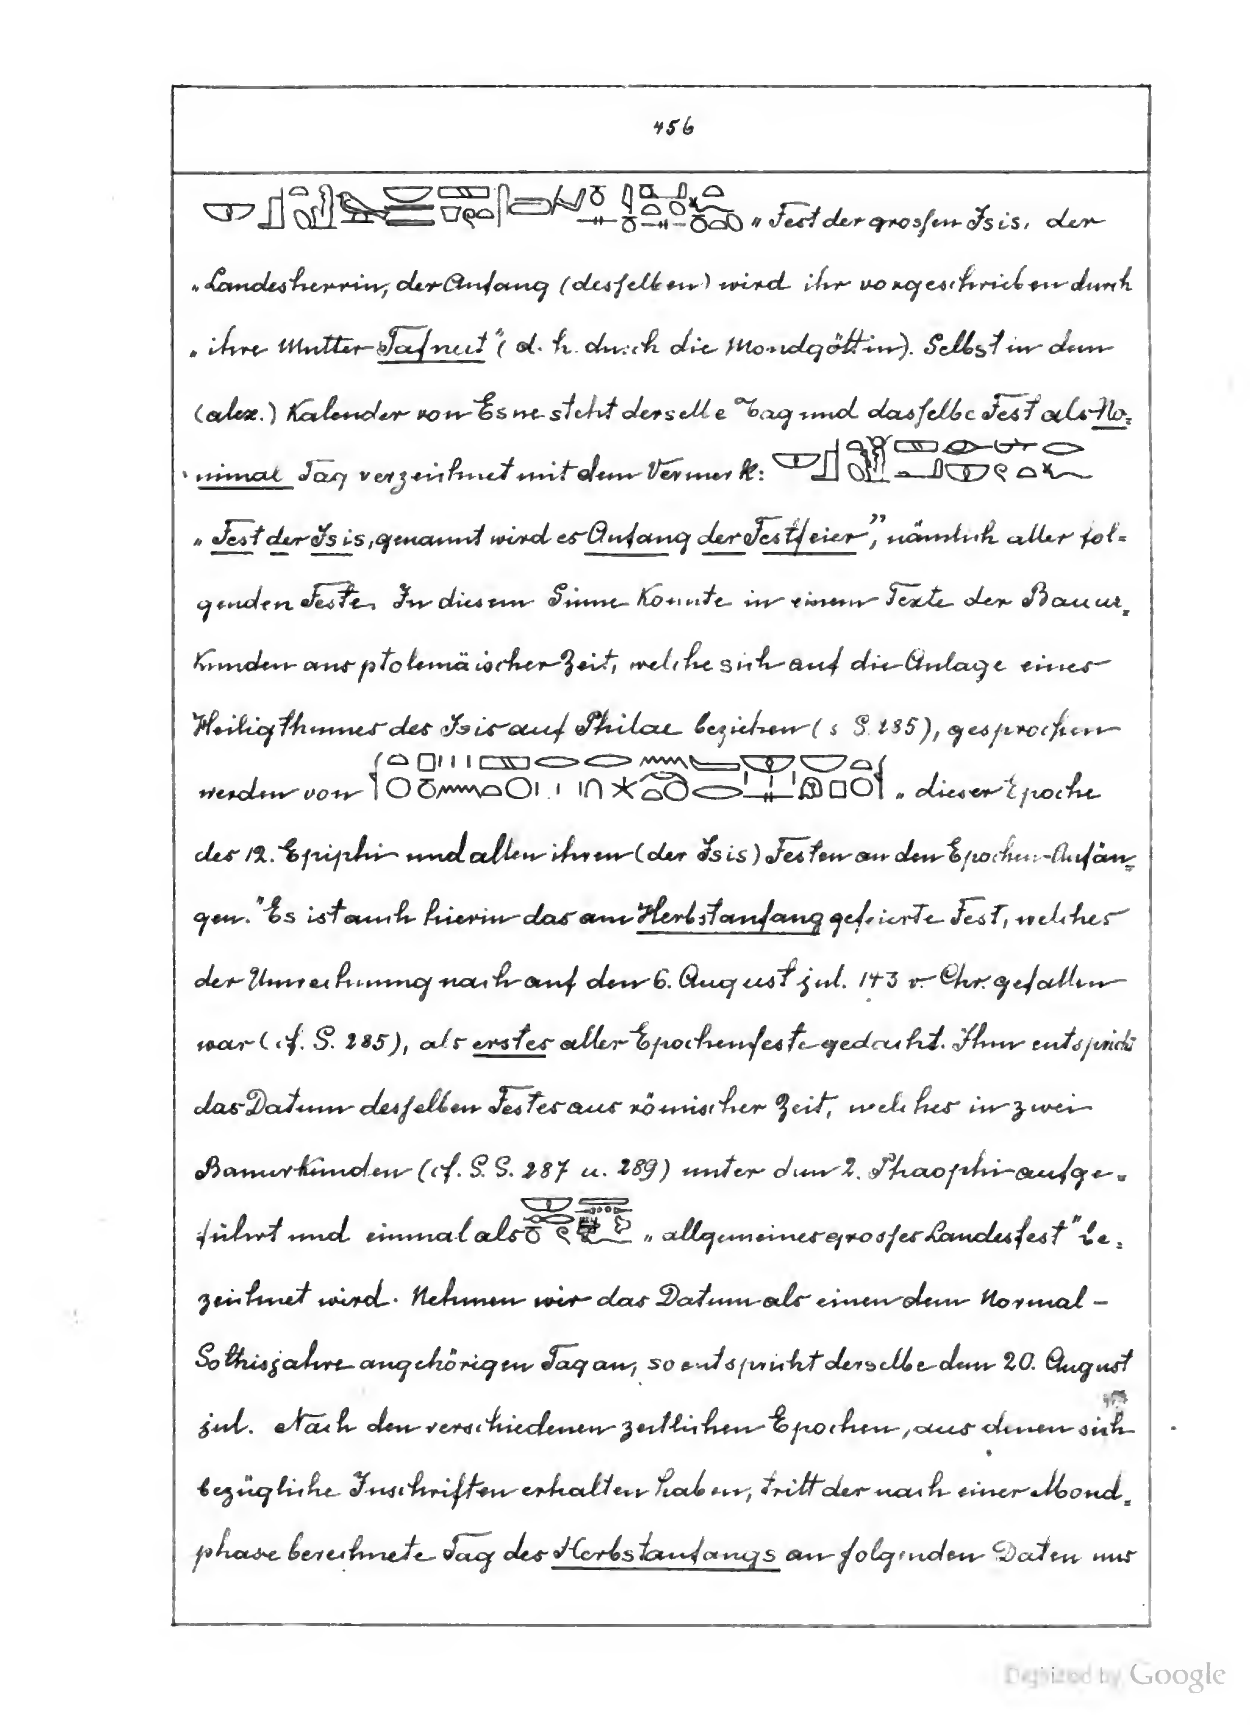 456
„Fest der grossen Isis, der
„Landesherrin, der Anfang (desselben) wird ihr vorgeschrieben durch
„ihre Mutter Tafnut“ (d. h. durch die Mondgöttin). Selbst in dem
(alex.) Kalender von Esne steht derselbe Tag und dasselbe Fest als No-
minal Tag verzeichnet mit dem Vermerk:
„Fest der Isis, genannt wird es Anfang der Festfeier“, nämlich aller fol-
genden Feste. In diesem Sinne konnte in einem Texte der Bauur-
kunden aus ptolemäischer Zeit, welche sich auf die Anlage eines
Heiligthumes des Isis auf Philae beziehen (s S. 285), gesprochen
werden von „dieser Epoche
des 12. Epiphi und allen ihren (der Isis) Festen an den Epochen-Anfän-
gen.“ Es ist auch hierin das am Herbstanfang gefeierte Fest, welches
der Umrechnung nach auf den 6. August jul. 143 v. Chr. gefallen
war (cf. S. 285), als erstes aller Epochenfeste gedacht. Ihm entspricht
das Datum desselben Festes aus römischer Zeit, welches in zwei
Bauurkunden (cf. S.S. 287 u. 289) unter dem 2. Phaophi aufge-
führt und einmal als „allgemeines grosses Landesfest“ be-
zeichnet wird. Nehmen wir das Datum als einen dem Normal-
Sothisjahre angehörigen Tag an, so entspricht derselbe dem 20. August
jul. Nach den verschiedenen zeitlichen Epochen, aus denen sich
bezügliche Inschriften erhalten haben, tritt der nach einer Mond-
phase berechnete Tag des Herbstanfangs an folgenden Daten uns
Digitized by Google